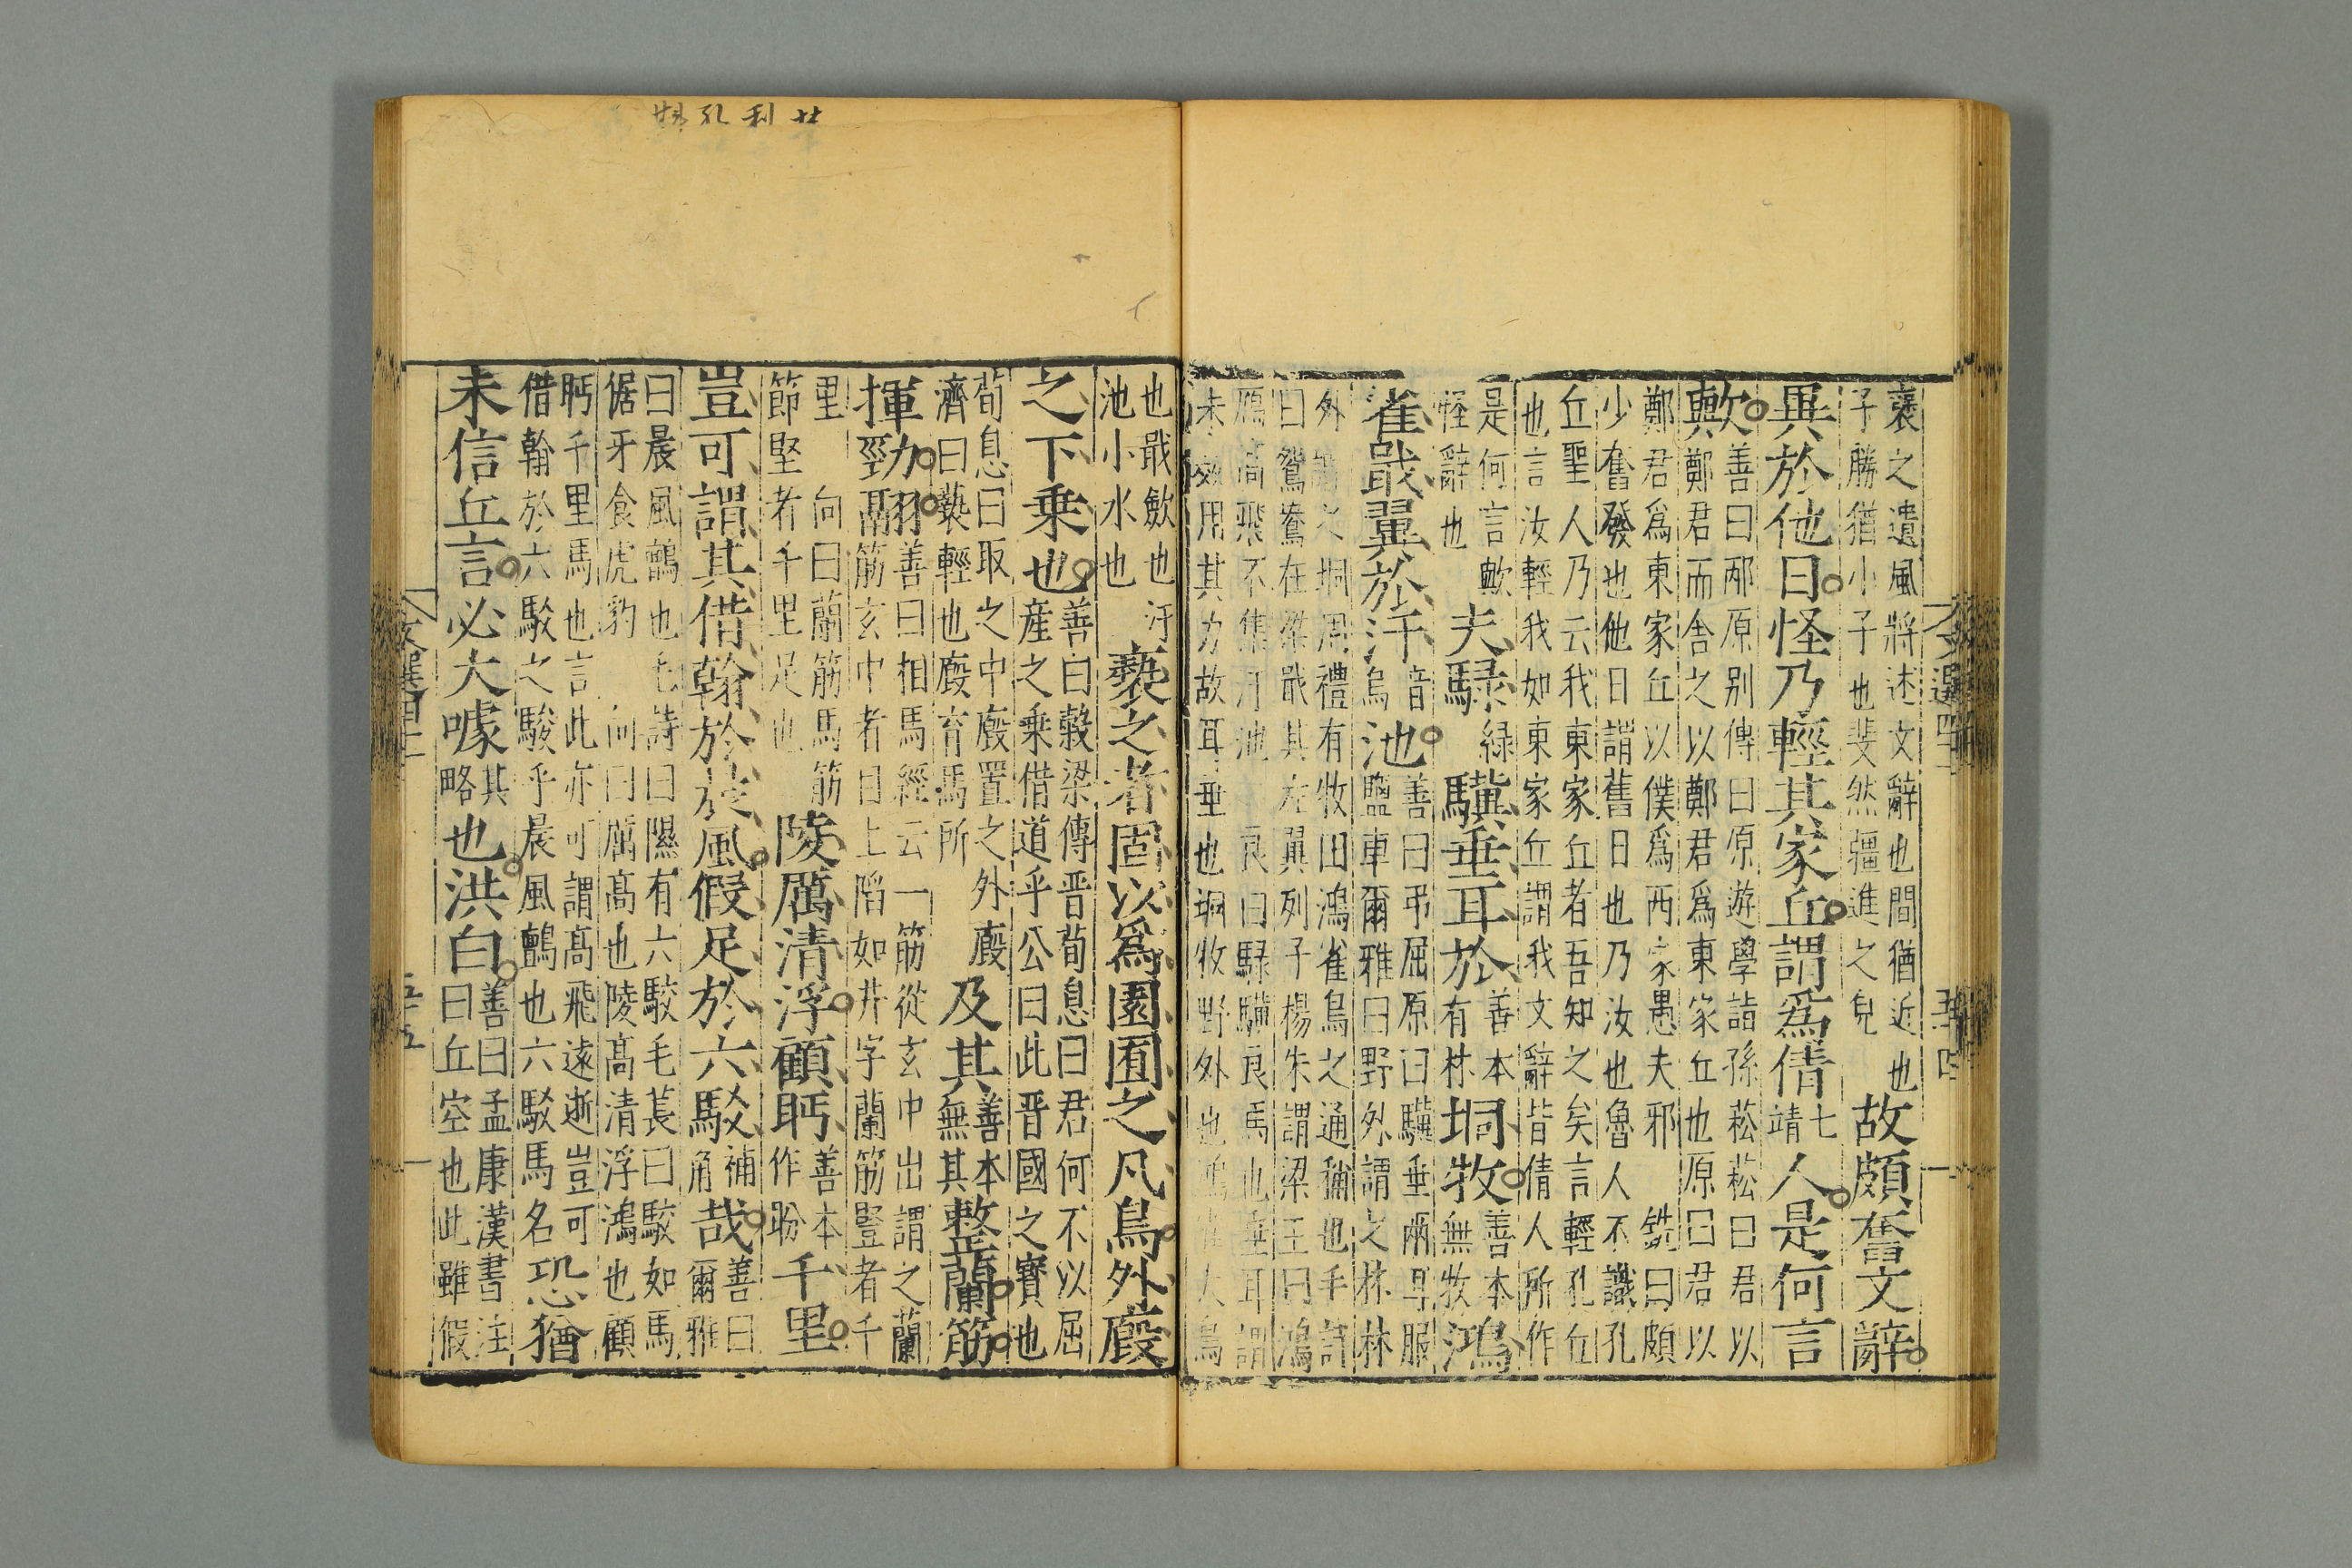 襃之遺風將述文辭也間猶近也
子勝猶小子也斐然彊進之皃
故頗奮文辭
異於他日怪乃輕其家丘謂爲倩
七
靖
人是何言
歟
善曰邴原別傳曰原遊學詣孫菘菘曰君以
鄭君而舍之以鄭君爲東家丘也原曰君以
鄭君爲東家丘以僕爲西家愚夫邪 銑曰頗
少奮發也他日謂舊日也乃汝也魯人不識孔
丘聖人乃云我東家丘者吾知之矣言輕孔丘
也言汝輕我如東家丘謂我文辭皆倩人所作
是何言歟
怪辭也
夫騄
緑
驥垂耳於
善本
有林
坰牧
善本
無牧
鴻
雀戢翼於汙
音
烏
池
善曰弔屈原曰驥垂兩耳服
鹽車爾雅曰野外謂之林林
外謂之坰周禮有牧田鴻雀鳥之通稱也毛詩
曰鴛鴦在梁戢其左翼列子楊朱謂梁王曰鴻
鴈高飛不集汙池 良曰騄驥良馬也垂耳謂
未效用其力故耳垂也坰牧野外也鴻雀大鳥
也戢斂也汙
池小水也
褻之者固以爲園囿之凡鳥外廄
之下乗也
善曰穀梁傳晋荀息曰君何不以屈
産之乗借道乎公曰此晋國之寳也
荀息曰取之中廄置之外廄
濟曰褻輕也廄育馬所
及其
善本
無其
整蘭筋
揮勁翮
善曰相馬經云一筋從玄中出謂之蘭
筋玄中者目上陷如井字蘭筋豎者千
里 向曰蘭筋馬筋
節堅者千里足也
陵厲清浮顧眄
善本
作盼
千里
豈可謂其借翰於晨風假足於六駮
補
角
哉
善曰
爾雅
曰晨風鸇也毛詩曰隰有六駮毛萇曰駮如馬
倨牙食虎豹 向曰厲髙也陵髙清浮鴻也顧
眄千里馬也言此亦可謂髙飛遠逝豈可
借翰於六駮之駿乎晨風鸇也六駮馬名
恐猶
未信丘言必大噱
其
略
也洪白
善曰孟康漢書注
曰丘空也此雖假
文選四十一
五十四
文選四十一
五十五